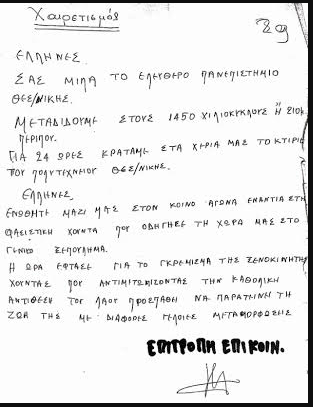 Χαιρετισμός
ΕΛΛΗΝΕΣ.
ΣΑΣ ΜΙΛΑ ΤΟ ΕΛΕΥΘΕΡΟ ΠΑΝΕΠΙΣΤΗΜΙΟ
ΘΕΣ/ΝΙΚΗΣ.
ΜΕΤΑΔΙΔΟΥΜΕ ΣΤΟΥΣ 1450 ΧΙΛΙΟΚΥΚΛΟΥΣ Ή 210Μ
ΠΕΡΙΠΟΥ.
ΓΙΑ 24 ΩΡΕΣ ΚΡΑΤΑΜΕ ΣΤΑ ΧΕΡΙΑ ΜΑΣ ΤΟ ΚΤΙΡΙΟ
ΤΟΥ ΠΟΛΥΤΧΝΕΙΟΥ ΘΕΣ/ΝΙΚΗΣ.
ΕΛΛΗΝΕΣ
ΕΝΩΘΗΤΕ ΜΑΖΙ ΜΑΣ ΣΤΟΝ ΚΟΙΝΟ ΑΓΩΝΑ ΕΝΑΝΤΙΑ ΣΤΗ
ΦΑΣΙΣΤΙΚΗ ΧΟΥΝΤΑ ΠΟΥ ΟΔΗΓΗΣΕ ΤΗ ΧΩΡΑ ΜΑΣ ΣΤΟ
ΓΕΝΙΚΟ ΞΕΠΟΥΛΗΜΑ.
Η ΩΡΑ ΕΦΤΑΣΕ ΓΙΑ ΤΟ ΓΚΡΕΜΙΣΜΑ ΤΗΣ ΞΕΝΟΚΙΝΗΤΗΣ
ΧΟΥΝΤΑΣ ΠΟΥ ΑΝΤΙΜΙΤΩΠΙΖΟΝΤΑΣ ΤΗΝ ΚΑΘΟΛΙΚΗ
ΑΝΤΙΘΕΣΗ ΤΟΥ ΛΑΟΥ ΠΡΟΣΠΑΘΗ ΝΑ ΠΑΡΑΤΙΝΗ ΤΗ
ΖΩΗ ΤΗΣ ΜΕ ΔΙΑΦΟΡΕΣ ΓΕΛΟΙΕΣ ΜΕΤΑΜΟΡΦΩΣΕΙΣ
ΕΠΙΤΡΟΠΗ ΕΠΙΚΟΙΝ.